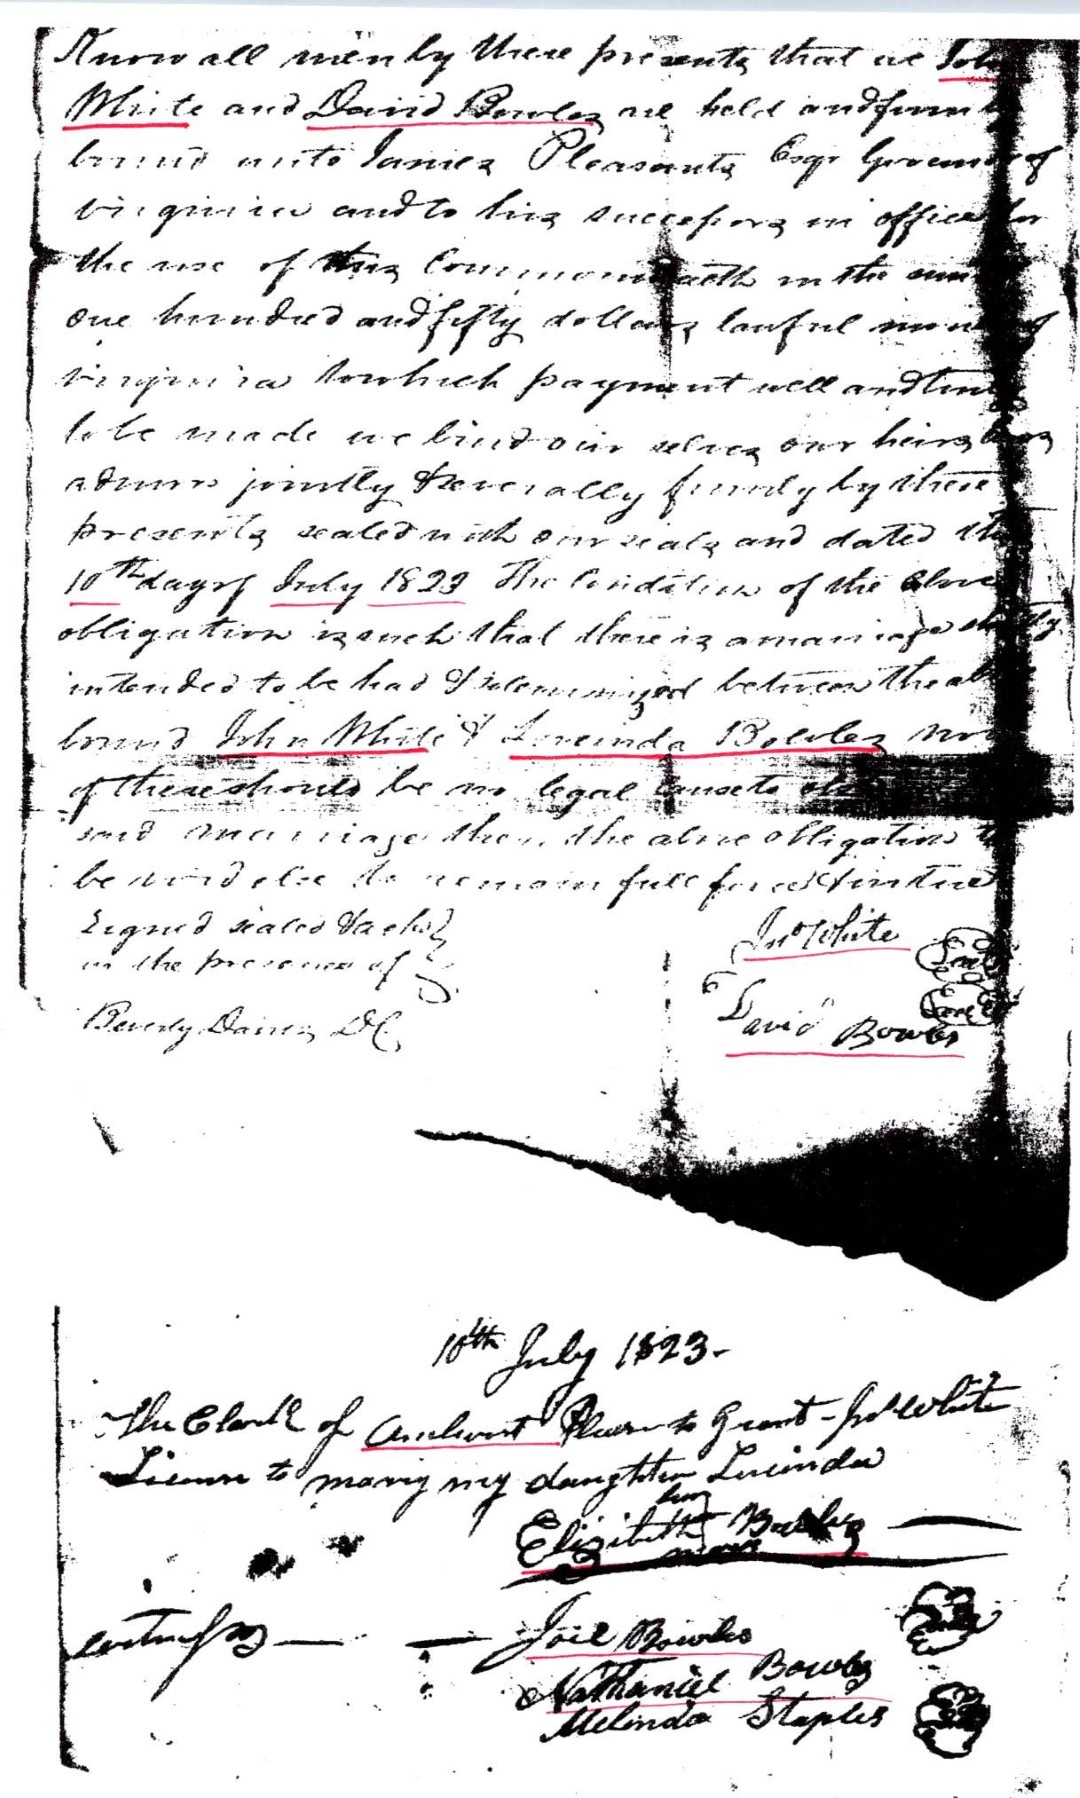 Know all men by these presents that we John
White and David Bowles are held and firmly
bound unto James Pleasants Esqr Governor of
Virginia and to his successors in office for
the use of this Commonwealth in the sum of
one hundred and fifty dollars lawful money of
Virginia to which payment well and truly
to be made we bind our selves our heirs
admrs jointly & severally firmly by these
presents sealed with our seals and dated this
10th day of July 1823 The Condition of the above
obligation is such that there is a marriage shortly
intended to be had & solemnized between the above
bound John White & Lucinda Bowles now
if there should be no legal cause to
said marriage then the above obligation to
be void else to remain full force & virtue
Signed sealed & ackd
in the presence of
Jno White Seal
David Bowles Seal
Beverly Davies DC
10th July 1823.
The Clerk of Amherst Please to Grant Jno White
License to marry my daughter Lucinda
her
Elizibeth Bowles
mark
witness
Joil Bowles Seal
Nathaniel Bowles
Melinda Staples Seal